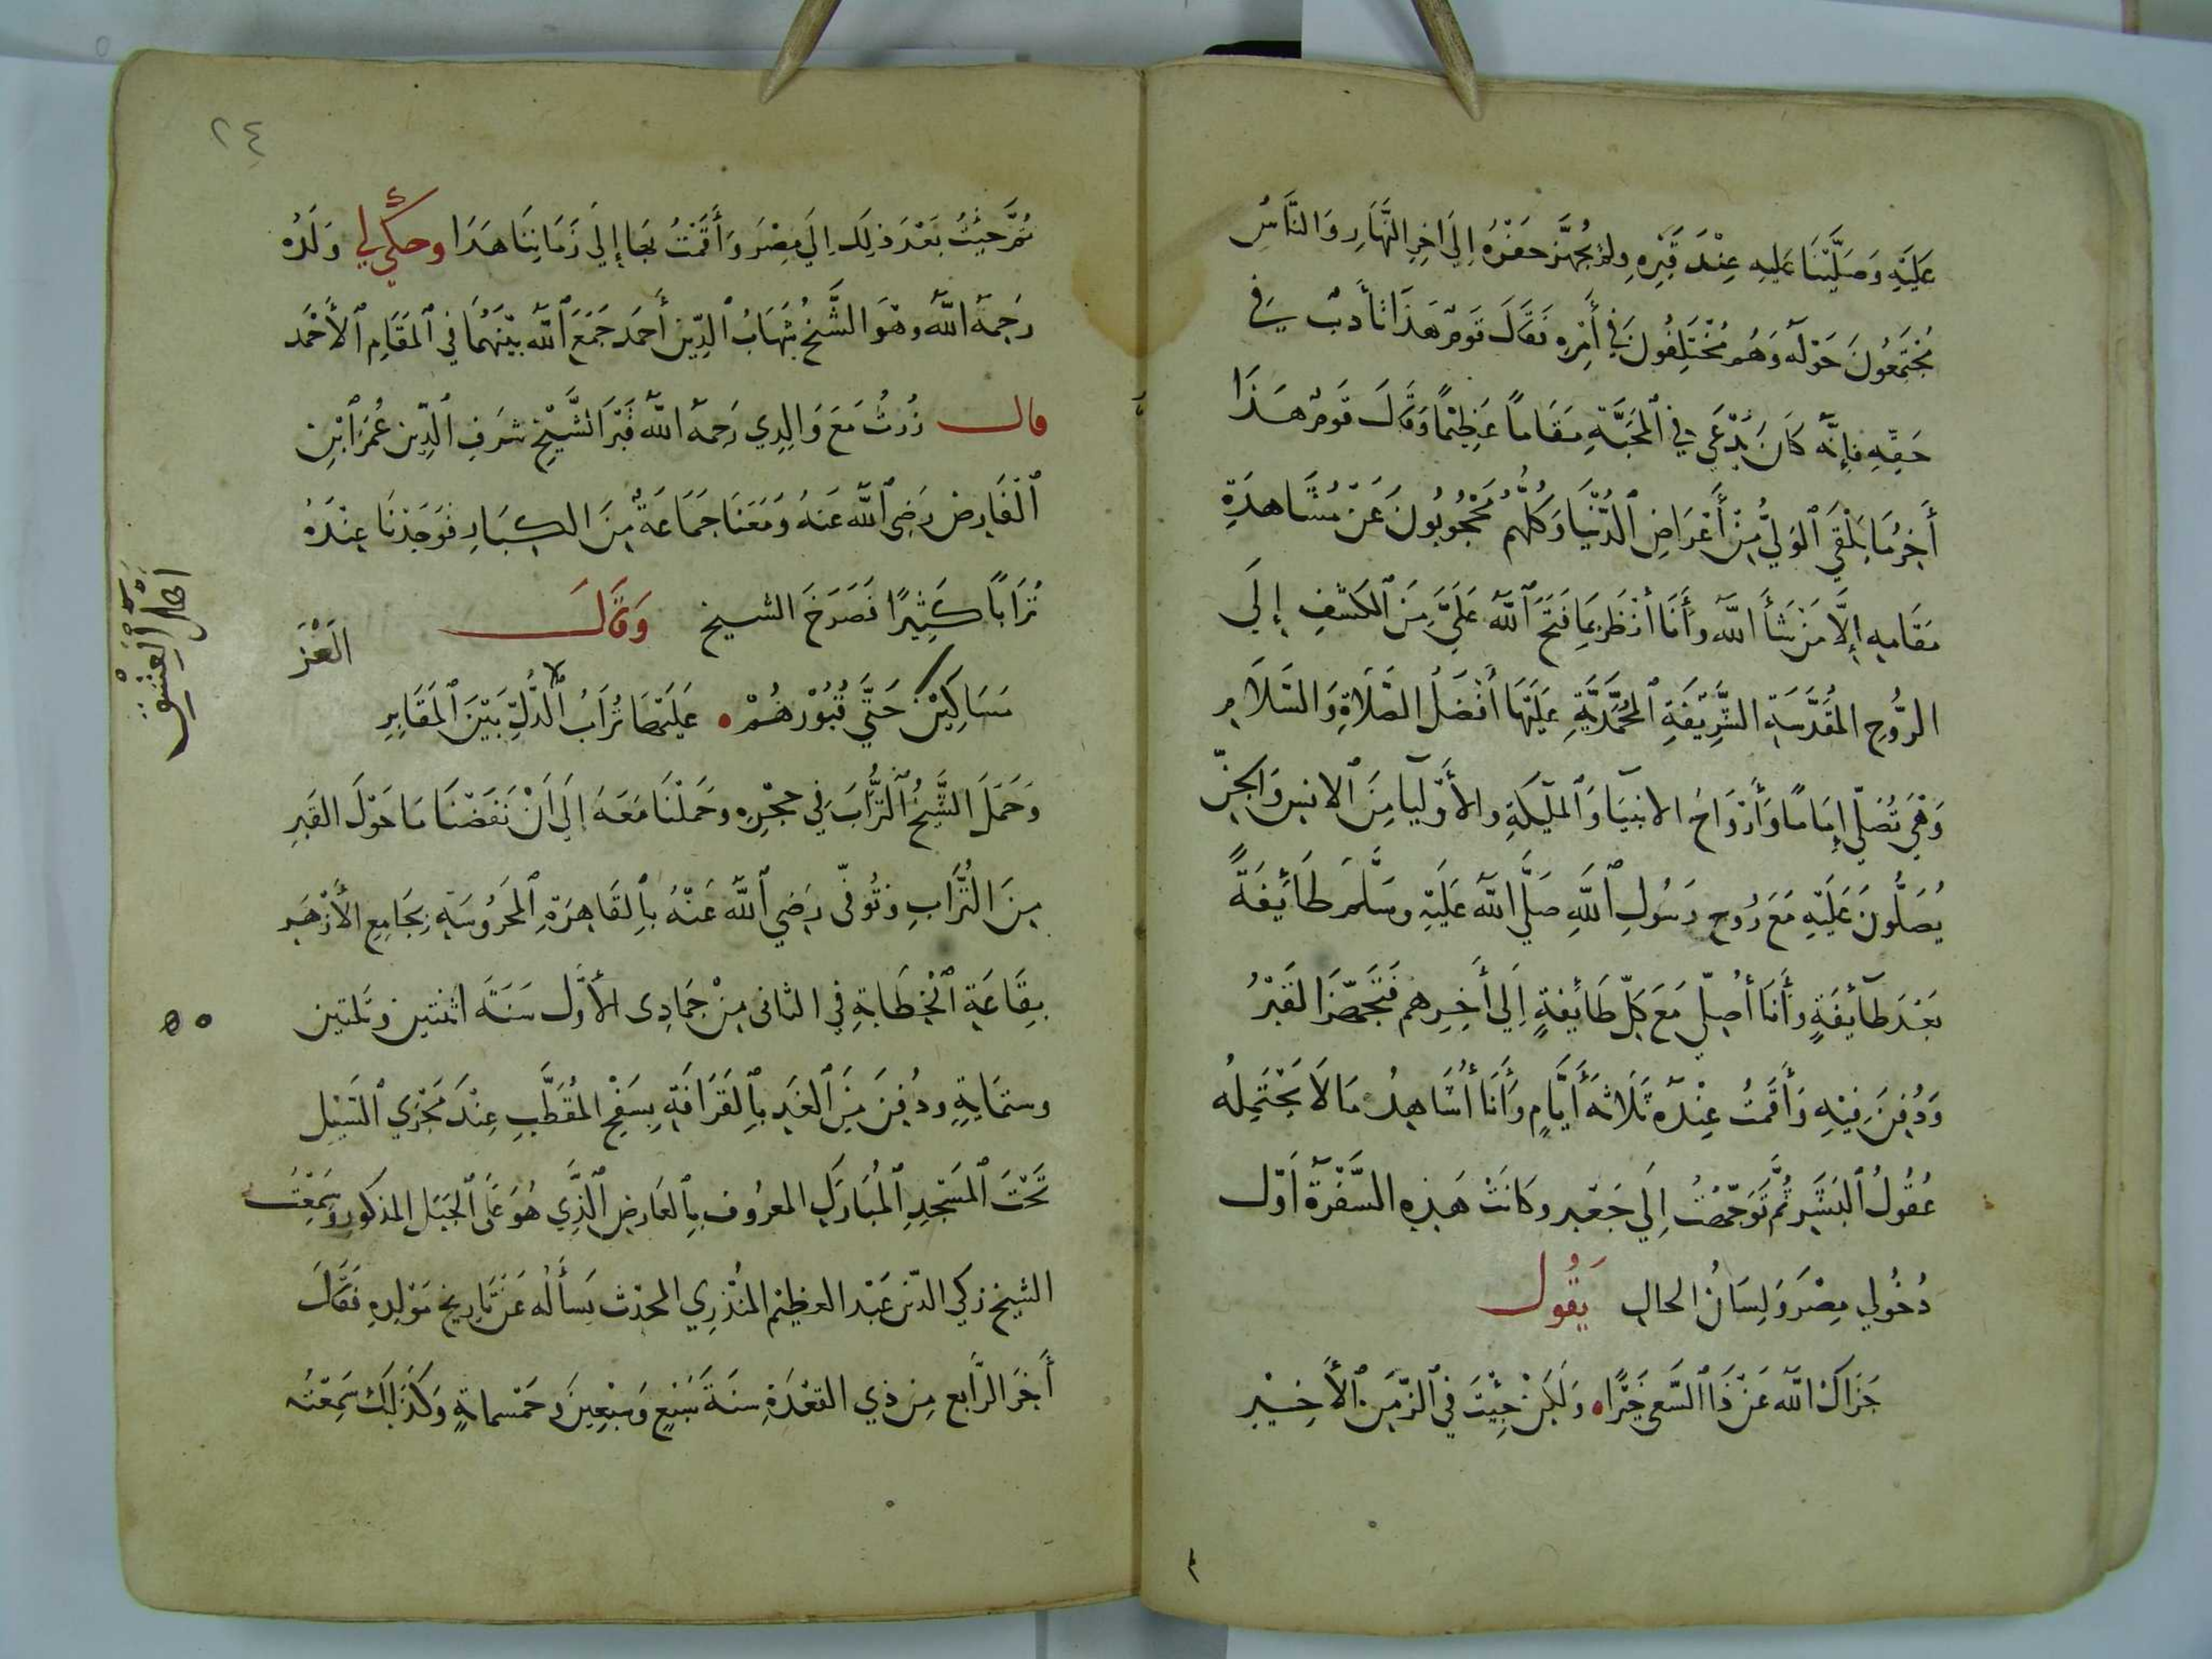 عَلَيْهِ وَصَلَّيْنَا عَلَيهِ عِنْدَ قَبْرِهِ وَلَمْ يُجَهَّز حَفْرُهُ إِلَى اخِرِ النَّهَارِ وَالنَّاسُ
مُجْتَمِعُونَ حَوْلَهُ وَهُم مُخْتَلِفُونَ فِي أَمْرِهِ فَقَالَ قَومٌ هَذَا تَأدِبٌ فِي
حَقِّهِ فَإِنَّهُ كَانَ يَدَّعِي فِي الْمَحَبَّةِ مَقَاماً عَظِيْمًا وَقَالَ قَومٌ هَذَا
أَخِرُ مَا يَلْقَى الْوَلِيُّ مِنْ أَعْرَاضِ الدُّنْيَا وَكُلُّهُم مَحْجُوبُونَ عَنْ مُشَاهَدَةِ
مَقَامِهِ إِلَّا مَنْ شَأَ اللهُ وَأَنَا أَنْظُر بِمَا فَتَحَ اللهُ عَلَيَّ مِنَ الكَشْفِ إِلَى
الرُّوحِ المُقَدَّسَةِ الشَّرِيْفَةِ الْمُحَمَّدِيَّةِ عَلَيْهَا أَفْضَلُ الصَّلَاةِ وَالسَّلَامِ
وَهْيَ تُصَلِّي إِمَامًا وَأَرْوَاحُ الانبِيَآ وَالْمَلَيِكَةِ وَالأَوْلِيَآ مِنَ الانسِ وَالْجِنِّ
يُصَلُّونَ عَلَيْهِ مَعَ رُوحِ رَسُولِ اللهِ صَلَّى اللهُ عَلَيْهِ وَسَلَّمَ طَائِفَةً
بَعْدَ طَآئِفَةٍ وَأَنَا أُصَلِّي مَعَ كُلِّ طَائِفَةٍ إِلَى أَخِرِهِم فَتَجَهَّزَ القَبْرُ
وَدُفِنَ فِيْهِ وَأَقَمْتُ عِنْدَهُ ثَلَاثَةَ أَيَّامٍ وَأَنَا أُشَاهِدُ مَا لَا يَحْتَمِلُهُ
عُقُولُ الْبَشَرِ ثُمَّ تَوَجَّهْتُ إِلَى جَعْبَر وَكَانَتْ هَذِهِ السَّفْرَةُ أَوّل
دُخُولِي مِصْرَ وَلِسَانُ الحَالِ يَقُول
جَزَاكَ اللهُ عَنْ ذَا السَّعي خَيْرًا ٠ وَلَكِنْ جِئْتَ فِي الزَّمَنِ الأَخِيْرِ
٢٤
ثُمَّ جِئْتُ بَعْدَ ذلِكَ إِلَى مِصْرَ وَأَقَمْتُ بِهَا إِلَى زَمَانِنَا هَذَا وحكَى لِي وَلَدُه
رَحِمَهُ اللهُ وَهُوَ الشَّيْخُ شِهَابُ الدِّين أَحمَد جَمَعَ اللهُ بَيْنَهُمَا فِي الْمَقَامِ الأَحْمَد
قال زُرتُ مَعَ وَالِدِي رَحِمَهُ اللهُ قَبْرَ الشَّيْخِ شَرَفِ الدِّين عُمَرَ ابْنِ
الْفَارِض رَضِيَ اللهُ عَنهُ وَمَعَنَا جَمَاعَةٌ مِنَ الكِبَارِ فَوَجَدْنَا عِنْدَهُ
تُرَاباً كَثِيْرًا فَصَرَخَ الشيخ وَقَالَ
مَسَاكِيْنُ أَهْلُ الْعِشْقِ حَتَّى قُبُوْرُهُمْ ٠ عَلَيْهَا تُرَابُ الذُّلِّ بَيْنَ الْمَقَابِرِ
وَحَمَلَ الشَّيْخُ التُّرَابَ فِي حِجْرِهِ وَحَمَلْنَا مَعَهُ إِلَى أَنْ نَفَضْنَا مَا حَوْلَ القَبرِ
مِنَ التُّرَابِ وَتُوُفّى رَضِيَ اللهُ عَنْهُ بِالقَاهِرَةِ الْمَحْرُوسَةِ بِجَامِعِ الأَزْهَرِ
بِقَاعَةِ الْخَطَابَةِ فِي الثانى مِنْ جُمَادِى الأَوَّل سَنَةَ اثنتين وثلثين
وستمَايةٍ ودُفِنَ مِنَ الغَدِ بِالقَرَافَةِ بِسَفْحِ المُقَطَّبِ عِنْدَ مَجْرَي السَيْلِ
تَحْتَ الْمَسْجِدِ الْمُبَارَكِ المعرُوف بِالعَارِض الَّذِي هُوَ عَلَى الجَبَلِ المذكور وسَمِعْتُ
الشيخ زكي الدّين عَبْد العظيْم المُنْذرِي المحدّث يَسأَلُه عَن تَارِيخ مَوْلِدِهِ فَقَالَ
أَخِرَ الرَّابع مِن ذِي القَعْدَةِ سَنَةَ سَبْعٍ وَسَبْعِينَ وخَمْسمايةٍ وَكَذلِكَ سَمِعْتُه